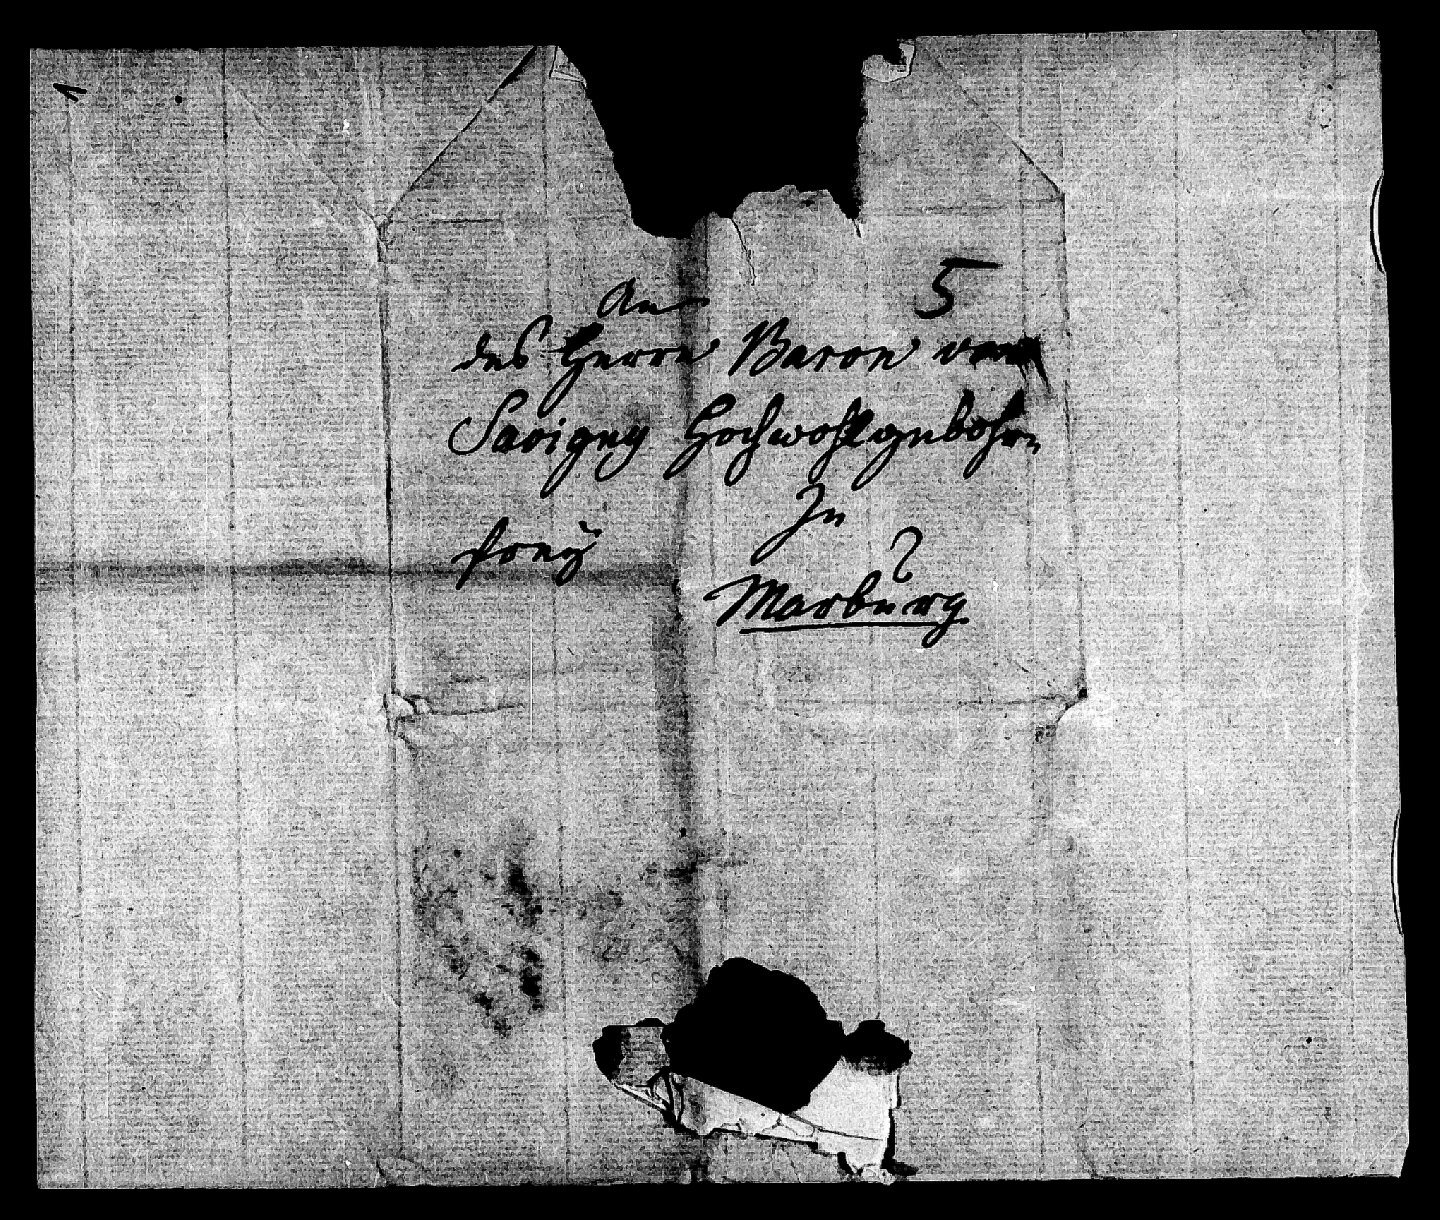 5
An
des Herrn Baron von
Savigny Hochwohlgebohrn
In
frey
Marburg